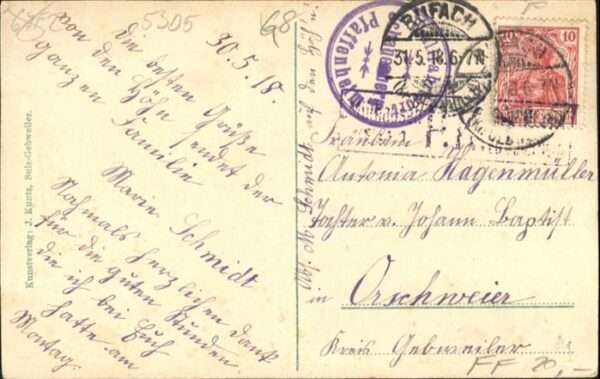 5305
68
30.5.18.
Die besten Grüße
von den Höhn sendet der
ganzen Familie
Marie Schmidt
Nochmals herzlichen Dank
für die guten Stunden
die ich bei Euch
hatte am
Montag.
Kunstverlag: J. Kuntz, Sulz-Gebweiler.
Abs. M. Schmidt auf den
RUFACH
31.5.18.6-7N
10
10
Fräulein
Antonia Hagenmüller
Tochter v. Johann Baptist
in Orschweier
Kreis Gebweiler
FF 20,-